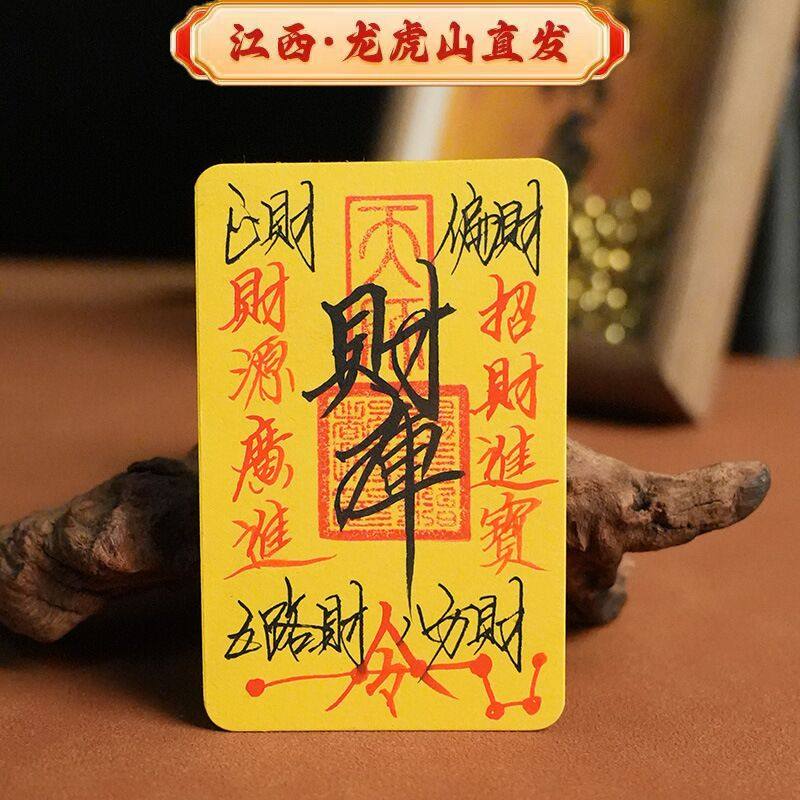 江西·龙虎山直发
正財
偏財
天師
財庫
財源廣進
招財進寶
五路財
八方財
令